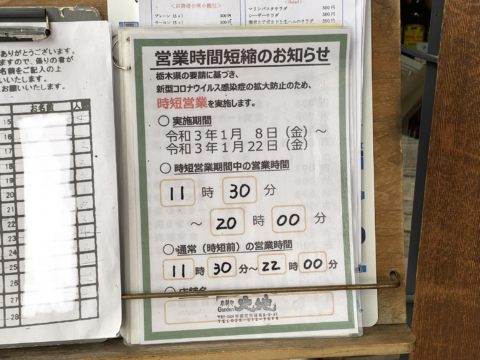 ありがとうございます。
すので、係りの者が
名前をご記入の上
いいたします。
いいたします。
お名前
人
15
16
17
18
19
20
21
22
23
24
25
26
27
28
シーザーサラダ
営業時間短縮のお知らせ
栃木県の要請に基づき、
新型コロナウイルス感染症の拡大防止のため、
時短営業を実施します。
○実施期間
令和3年1月 8日（金）～
令和3年1月22日（金）
○時短営業期間中の営業時間
11 時 30 分
～ 20 時 00 分
○通常（時短前）の営業時間
11 時 30 分～ 22 時 00 分
○店舗名
Garden 大地